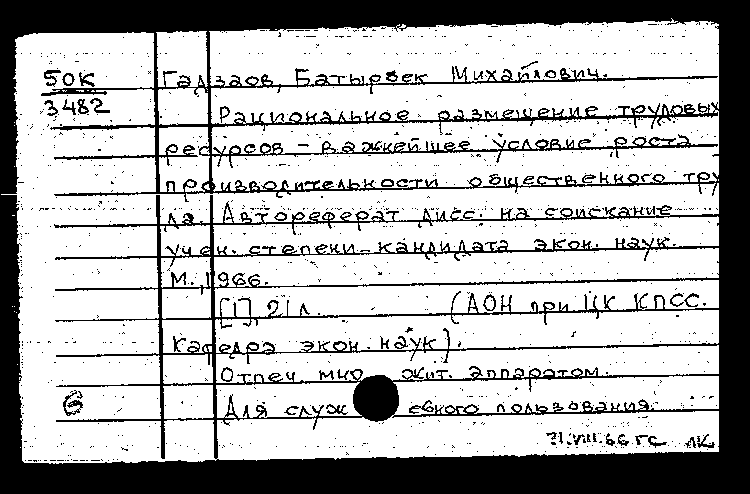 50К Гадзаов, Батырбек Михайлович.
3482 Рациональное размещение трудовых
ресурсов - важнейшее условие роста
производительности общественного тру
да. Автореферат дисс. на соискание
учен. степени кандидата экон. наук.
М., 1966.
[1], 21 л. (АОН при ЦК КПСС.
Кафедра экон. наук).
Отпеч. мно жит. аппаратом.
6 Для служ ебного пользования.
31.VIII.66 ГС ЛК